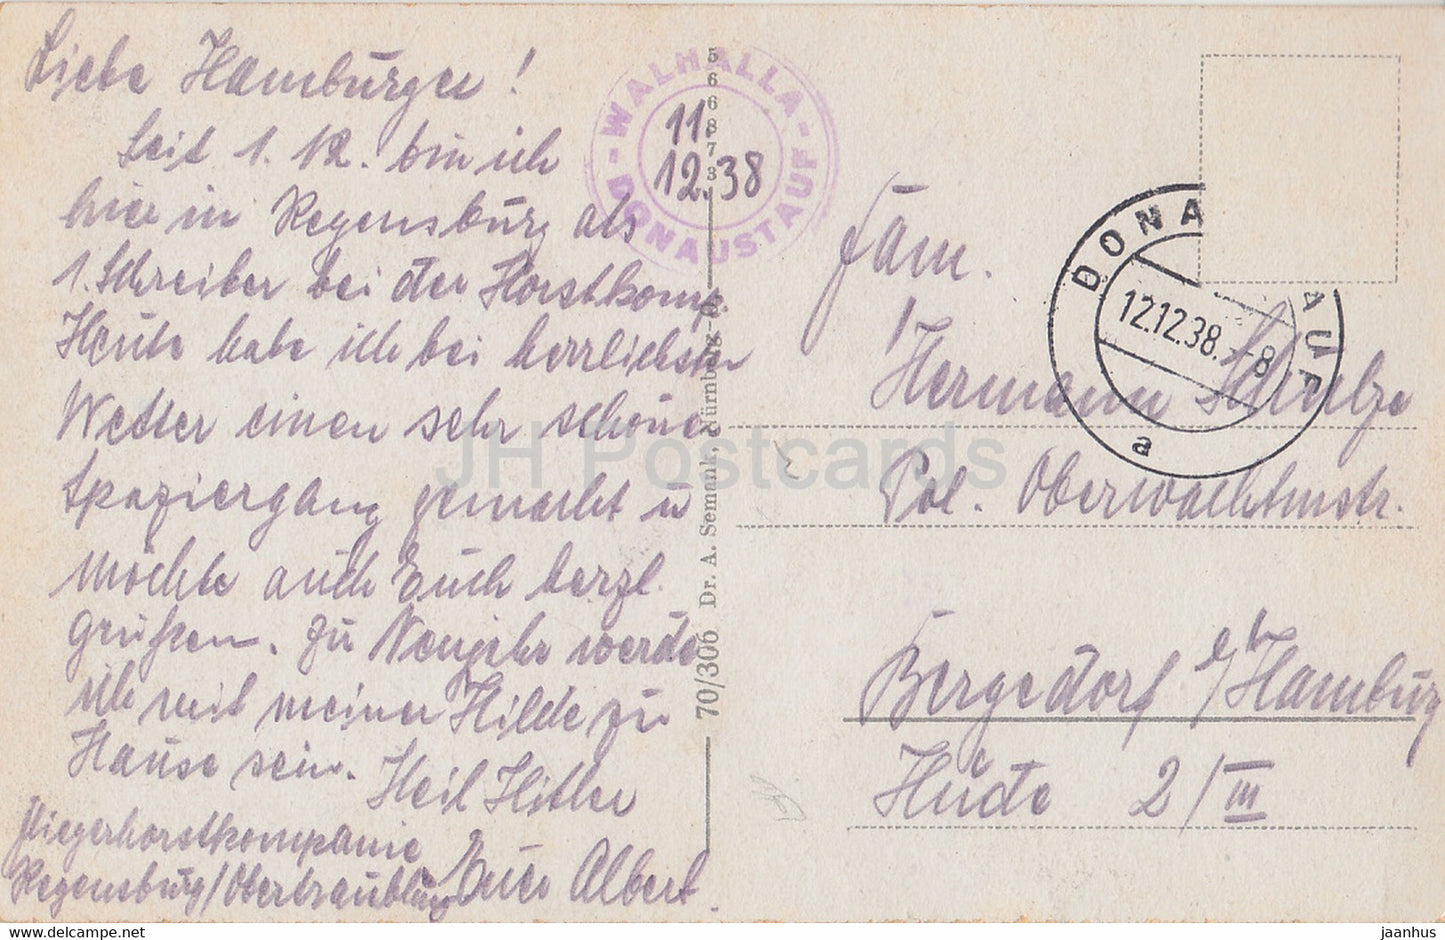 Liebe Hamburger!
Seit 1. 12. bin ich
hier in Regensburg als
1. Schreiber bei der Horstkomp.
Heute habe ich bei herrlichster
Wetter einen sehr schönen
Spaziergang gemacht u
möchte auch Euch herzl.
grüßen. Zu Neujahr werde
ich mit meiner Hilde zu
Hause sein. Heil Hitler
Fliegerhorstkompanie
Regensburg/Obertraubling
Euer Albert.
WALHALLA
11.
12.38
DONAUSTAUF
5668873
70/306 Dr. A. Semank, Nürnberg-O
DONAUSTAUF
12.12.38.-8
a
Fam.
Hermann Schulze
Pol. Oberwachtmstr.
Bergedorf b/Hamburg
Hude 2/III
JH Postcards
jaanhus
www.hippostcard.com